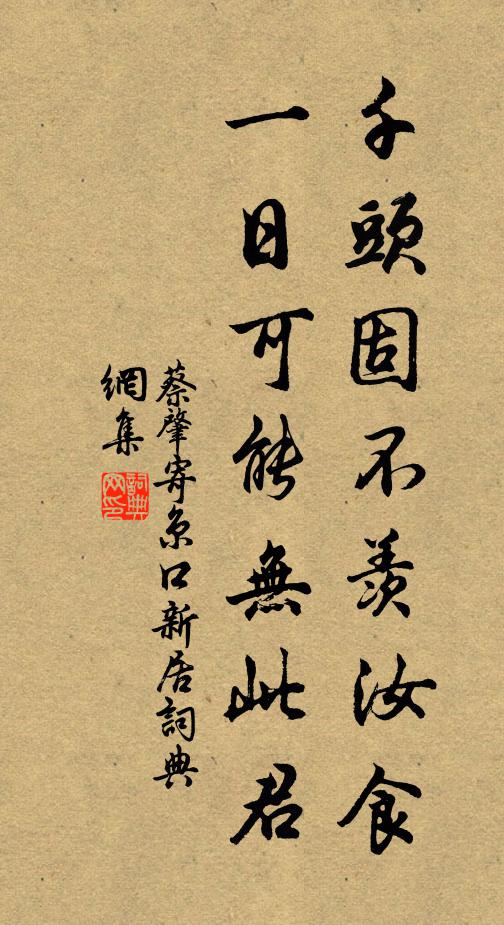 千頭固不羨汝食
一日可能無此君
蔡肇寄京口新居詞典
網集
詞典網印